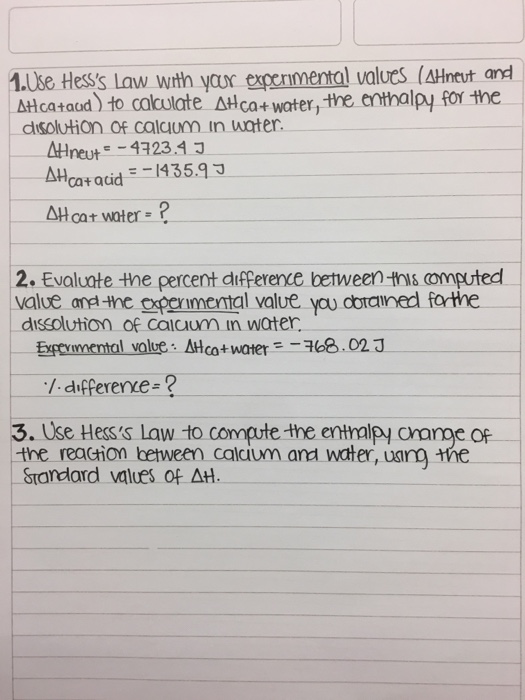 1. Use Hess's Law with your experimental values (ΔHneut and
ΔHca+acid) to calculate ΔHca+water, the enthalpy for the
disolution of calcium in water.
ΔHneut = -4723.4 J
ΔHcat acid = -1435.9 J
ΔH ca+ water = ?
2. Evaluate the percent difference between this computed
value and the experimental value you obtained for the
dissolution of calcium in water.
Experimental value: ΔHca+water = -768.02 J
% difference = ?
3. Use Hess's Law to compute the enthalpy change of
the reaction between calcium and water, using the
Standard values of ΔH.